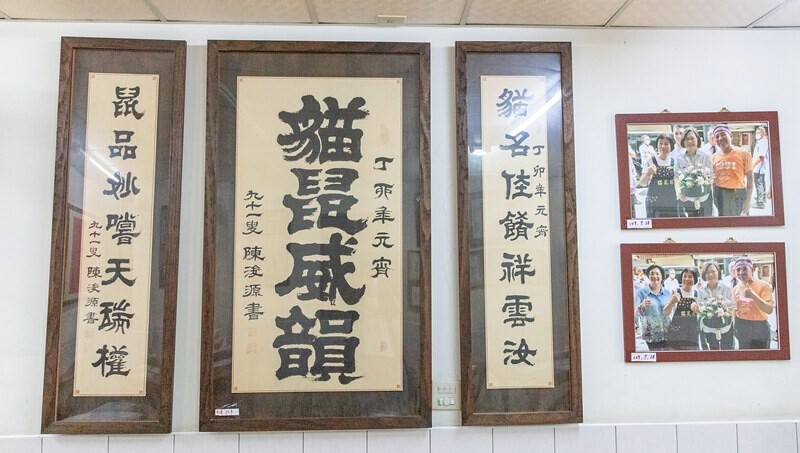 貓名佳餚祥雲汝
丁卯年元宵
貓鼠威韻
丁卯年元宵
九十一叟 陳浚源書
鼠品妙嚐天瑞權
九十一叟 陳浚源書